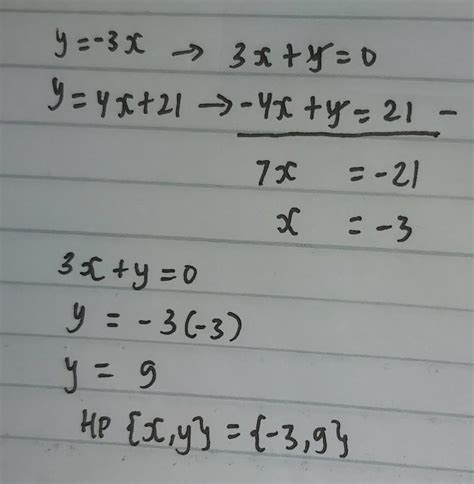 y = -3x → 3x + y = 0
y = 4x + 21 → -4x + y = 21 -
7x = -21
x = -3
3x + y = 0
y = -3(-3)
y = 9
HP {x,y} = {-3,9}